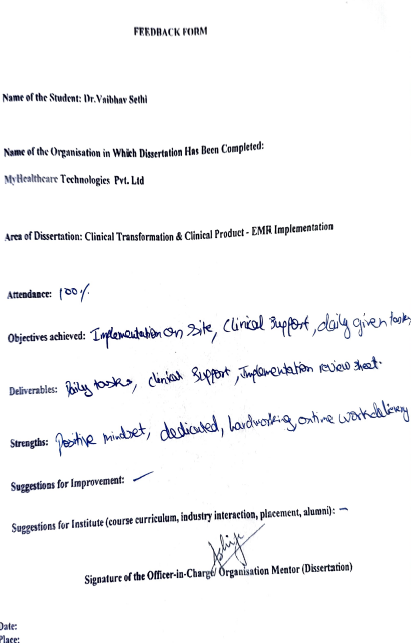 FEEDBACK FORM
Name of the Student: Dr.Vaibhav Sethi
Name of the Organisation in Which Dissertation Has Been Completed:
MyHealthcare Technologies Pvt. Ltd
Area of Dissertation: Clinical Transformation & Clinical Product - EMR Implementation
Attendance: 100%
Objectives achieved: Implementation on site, Clinical Support, daily given tasks
Deliverables: Daily tasks, clinical Support, Implementation review sheet.
Strengths: Positive mindset, dedicated, hardworking, ontime work delivery
Suggestions for Improvement: —
Suggestions for Institute (course curriculum, industry interaction, placement, alumni): –
Signature of the Officer-in-Charge/ Organisation Mentor (Dissertation)
Date:
Place: